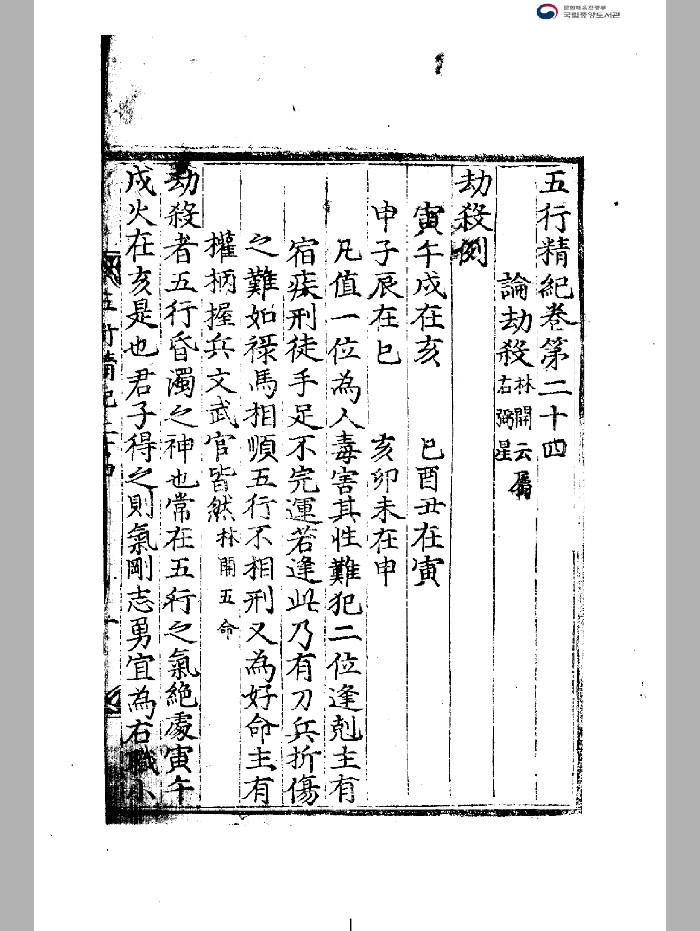 국립중앙도서관
五行精紀卷第二十四
論劫殺 林開云屬右弼星
劫殺例
寅午戌在亥 巳酉丑在寅
申子辰在巳 亥卯未在申
凡值一位為人毒害其性難犯二位逢剋主有
宿疾刑徒手足不完運若逢此乃有刀兵折傷
之難如祿馬相順五行不相刑又為好命主有
權柄握兵文武官皆然 林開五命
劫殺者五行昏濁之神也常在五行之氣絶處寅午
戌火在亥是也君子得之則氣剛志勇宜為右職小
五行精紀二十四